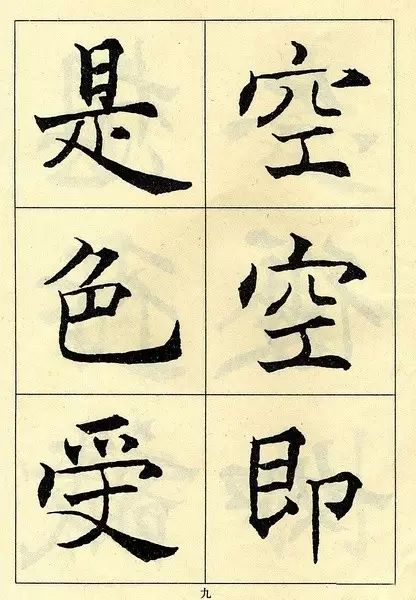 空空即
是色受
九